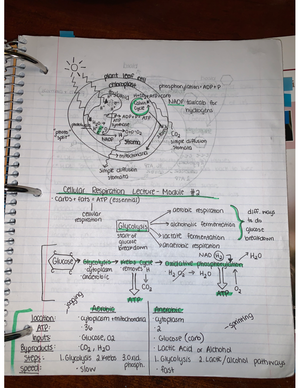 plant leaf cell
chloroplast
phosphorylation = ADP + P
NADP taxicab for
hydrogens
Calvin
Cycle
ATP
ADP
NADP
stroma
mitochondria
CO2
simple diffusion
stomata
simple diffusion
stomata
Cellular Respiration Lecture - Module #2
carbs + fats = ATP (essential)
cellular
respiration
Glycolysis
start of
glucose
breakdown
aerobic respiration
alcoholic fermentation
lactate fermentation
anaerobic respiration
diff. ways
to do
glucose
breakdown
NAD H2
H2O
Glucose
Glycolysis
Krebs Cycle
Oxidative phosphorylation
cytoplasm
anaerobic
removes H
CO2
H2O
O2
ATP
ATP
jogging
Aerobic
Anaerobic
sprinting
location
· cytoplasm + mitochondria
· cytoplasm
ATP:
· 36
· 2
Inputs:
· Glucose, O2
· Glucose (carb)
Byproducts:
· CO2 + H2O
· Lactic Acid or Alcohol
Steps:
1. Glycolysis 2. Krebs 3. oxid. phosph.
1. Glycolysis 2. Lactic/alcohol pathways
speed:
· slow
· fast